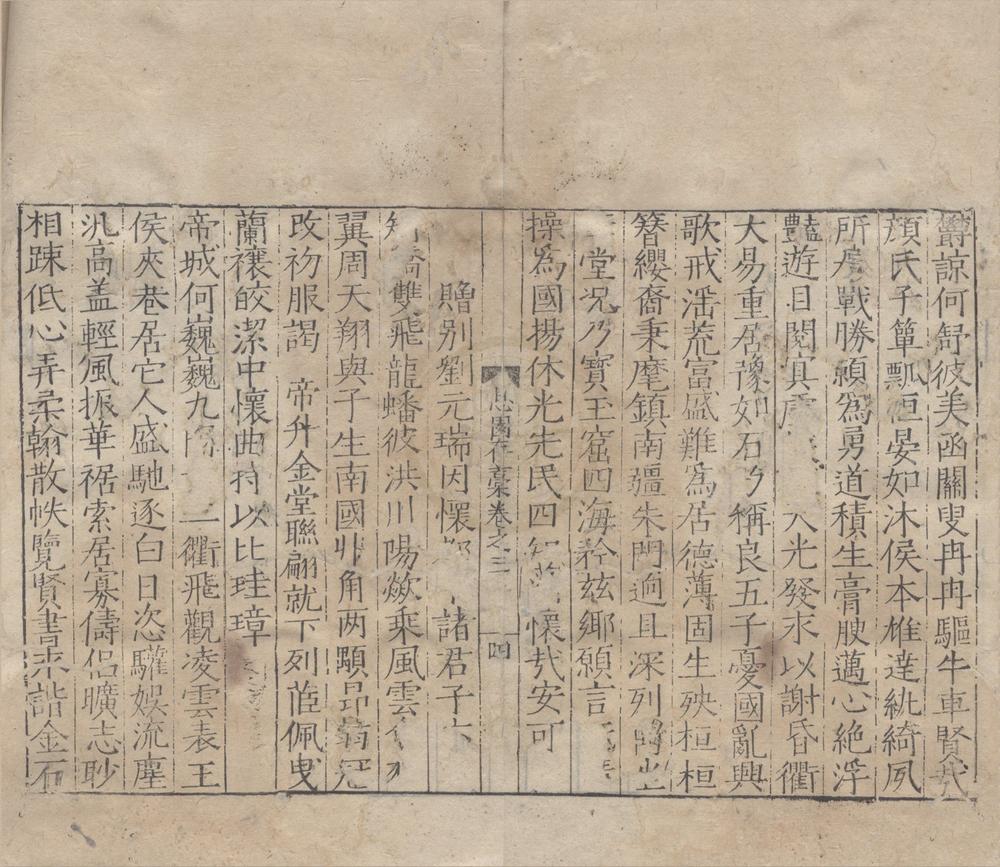 爵諒何舒彼美函關叟冉冉驅牛車賢哉
顏氏子簞瓢恒晏如沐侯本雄達紈綺夙
所戰勝頼為勇道積生膏腴邁心絶浮
豔遊日閱寘虛光發永以謝昏衢
大易重居豫如石乃稱良五子憂國亂興
歌戒滛荒富盛難為居德薄固生殃桓桓
簪纓裔秉麾鎮南疆朱門迥且深列
堂况乃寶玉窟四海矜兹鄉願言
操為國揚休光先民四知懷㢤安可
息園存藳卷之三
四
贈別劉元瑞因懷諸君子
雙飛龍蟠彼洪川陽歘乘風雲
翼周天翔與子生南國丱角两顒昂冠
改初服謁　帝升金堂聯翩就下列茝佩曳
蘭禳皎潔中懷曲持以比珪璋
帝城何巍巍九衢飛觀凌雲表王
侯夾巷居它人盛馳逐白日恣驩娛流塵
汎高盖輕風振華裾索居寡儔侣曠志眇
相踈低心弄柔翰散帙覽賢書來諧金石